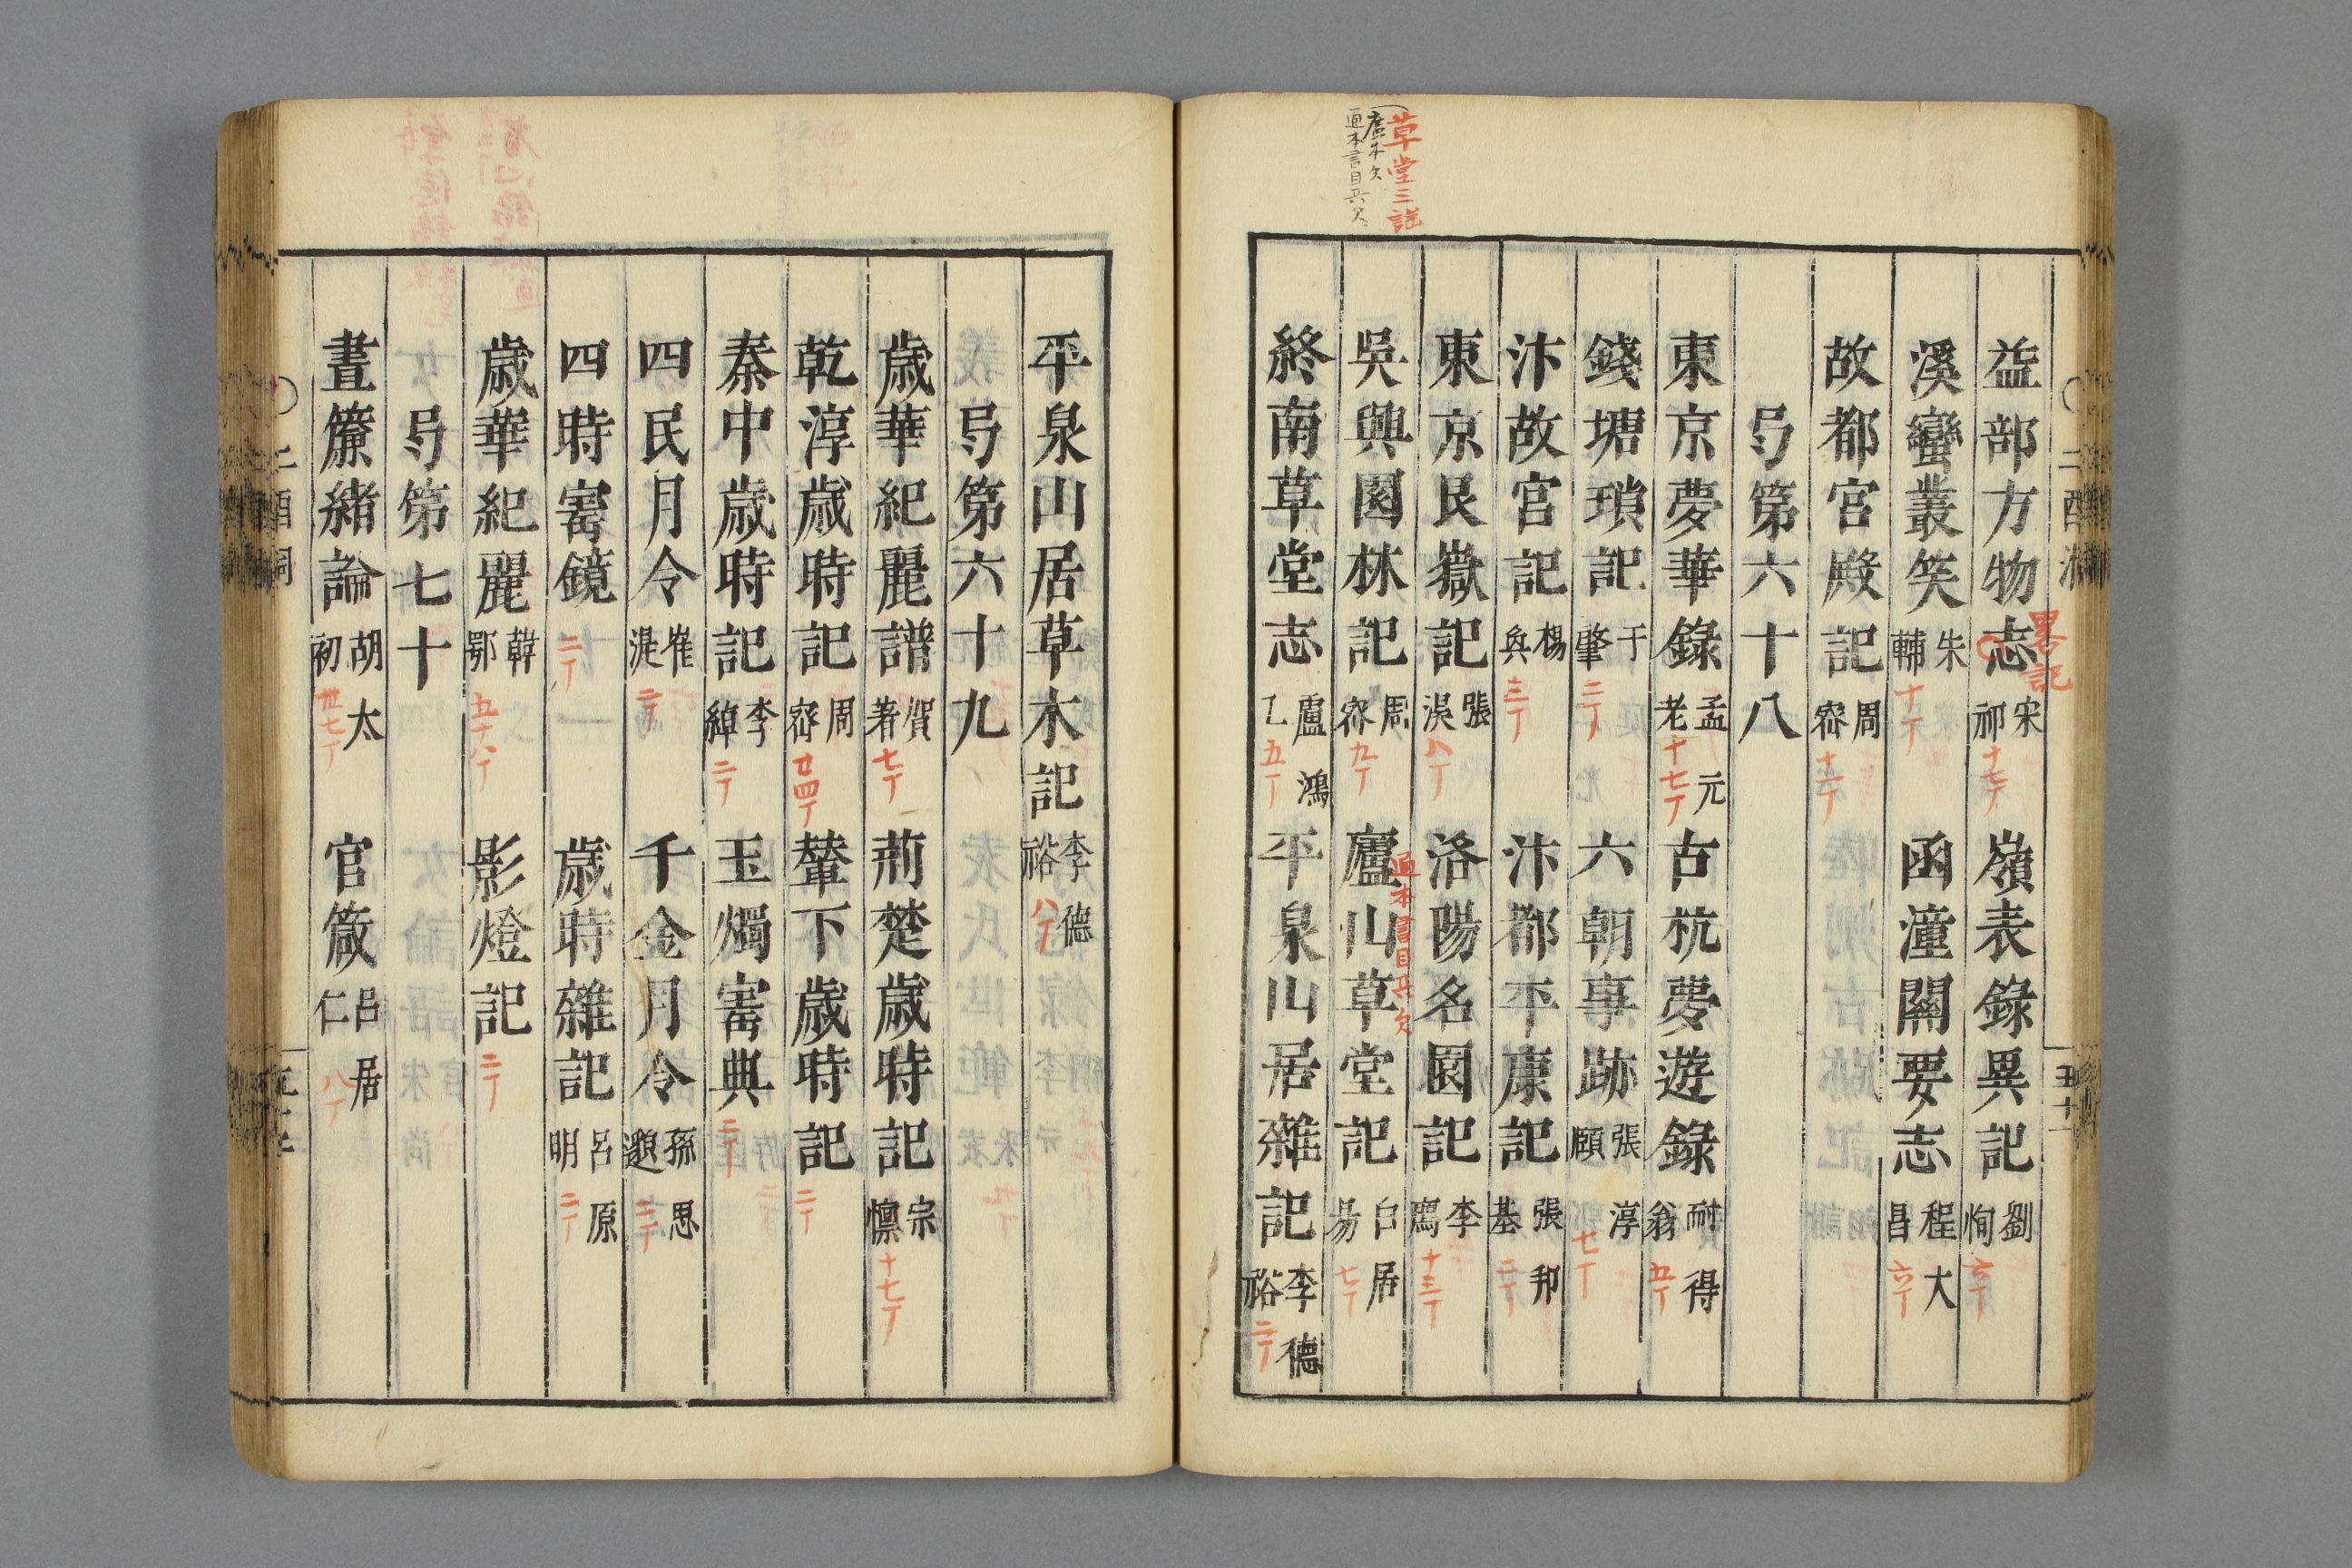 益部方物志 宋祁 十七丁 嶺表錄異記 劉恂 六丁
畧記
溪蠻叢笑 朱輔 十丁 函潼關要志 程大昌 六丁
故都官殿記 周宻 十一丁
弓第六十八
東京夢華錄 孟元老 十七丁 古杭夢遊錄 耐得翁 五丁
錢塘瑣記 于肇 二丁 六朝事跡 張敦頤 七丁
汴故宮記 楊奐 三丁 汴都平康記 張邦基 二丁
東京艮嶽記 張淏 八丁 洛陽名園記 李廌 十三丁
吳興園林記 周宻 九丁 廬山草堂記 白居易 七丁
通本書目共欠
草堂三謡
廬本欠
通本書目共欠
終南草堂志 盧鴻乙 五丁 平泉山居雜記 李德裕 二丁
二酉
五十一
平泉山居草木記 李德裕 八丁
弓第六十九
歲華紀麗譜 費著 七丁 荊楚歲時記 宗懍 十七丁
乾淳歲時記 周宻 廿四丁 輦下歲時記 二丁
秦中歲時記 李綽 二丁 玉燭寶典 二丁
四民月令 崔寔 二丁 千金月令 孫思邈 三丁
四時寶鏡 二丁 歲時雜記 呂原明 二丁
歲華紀麗 韓鄂 五十八丁 影燈記 二丁
弓第七十
晝簾緒論 胡太初 卅七丁 官箴 呂居仁 八丁